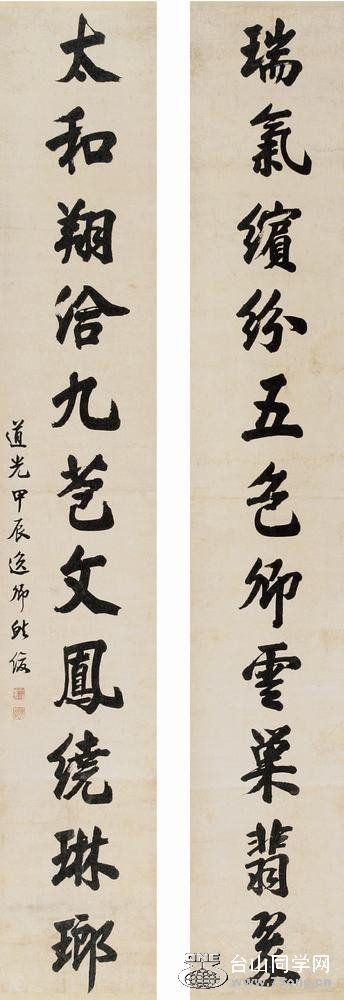 瑞氣繽紛五色卿雲巢翡翠
太和翔洽九苞文鳳繞琳瑯
道光甲辰逸卿
ONE
台山同学网